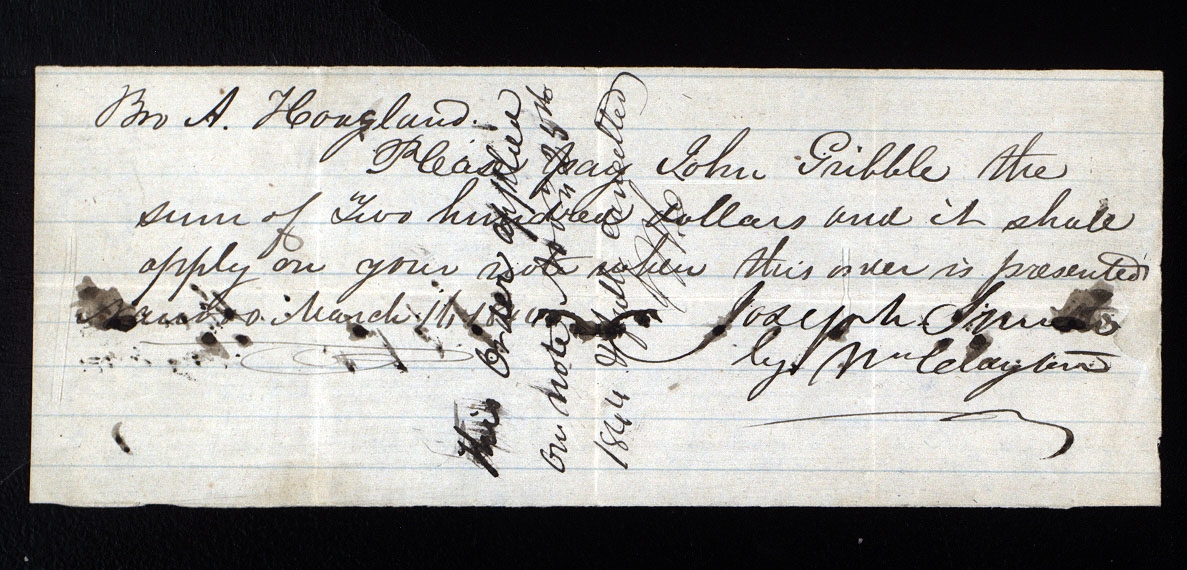 Bro A. Hoagland.
Please pay John Gribble the
sum of Two hundred dollars and it shall
apply on your note when this order is presented
Nauvoo March 11
Joseph Smith
by Wm Clayton
This Order applied
on note
1844 & full cancelled